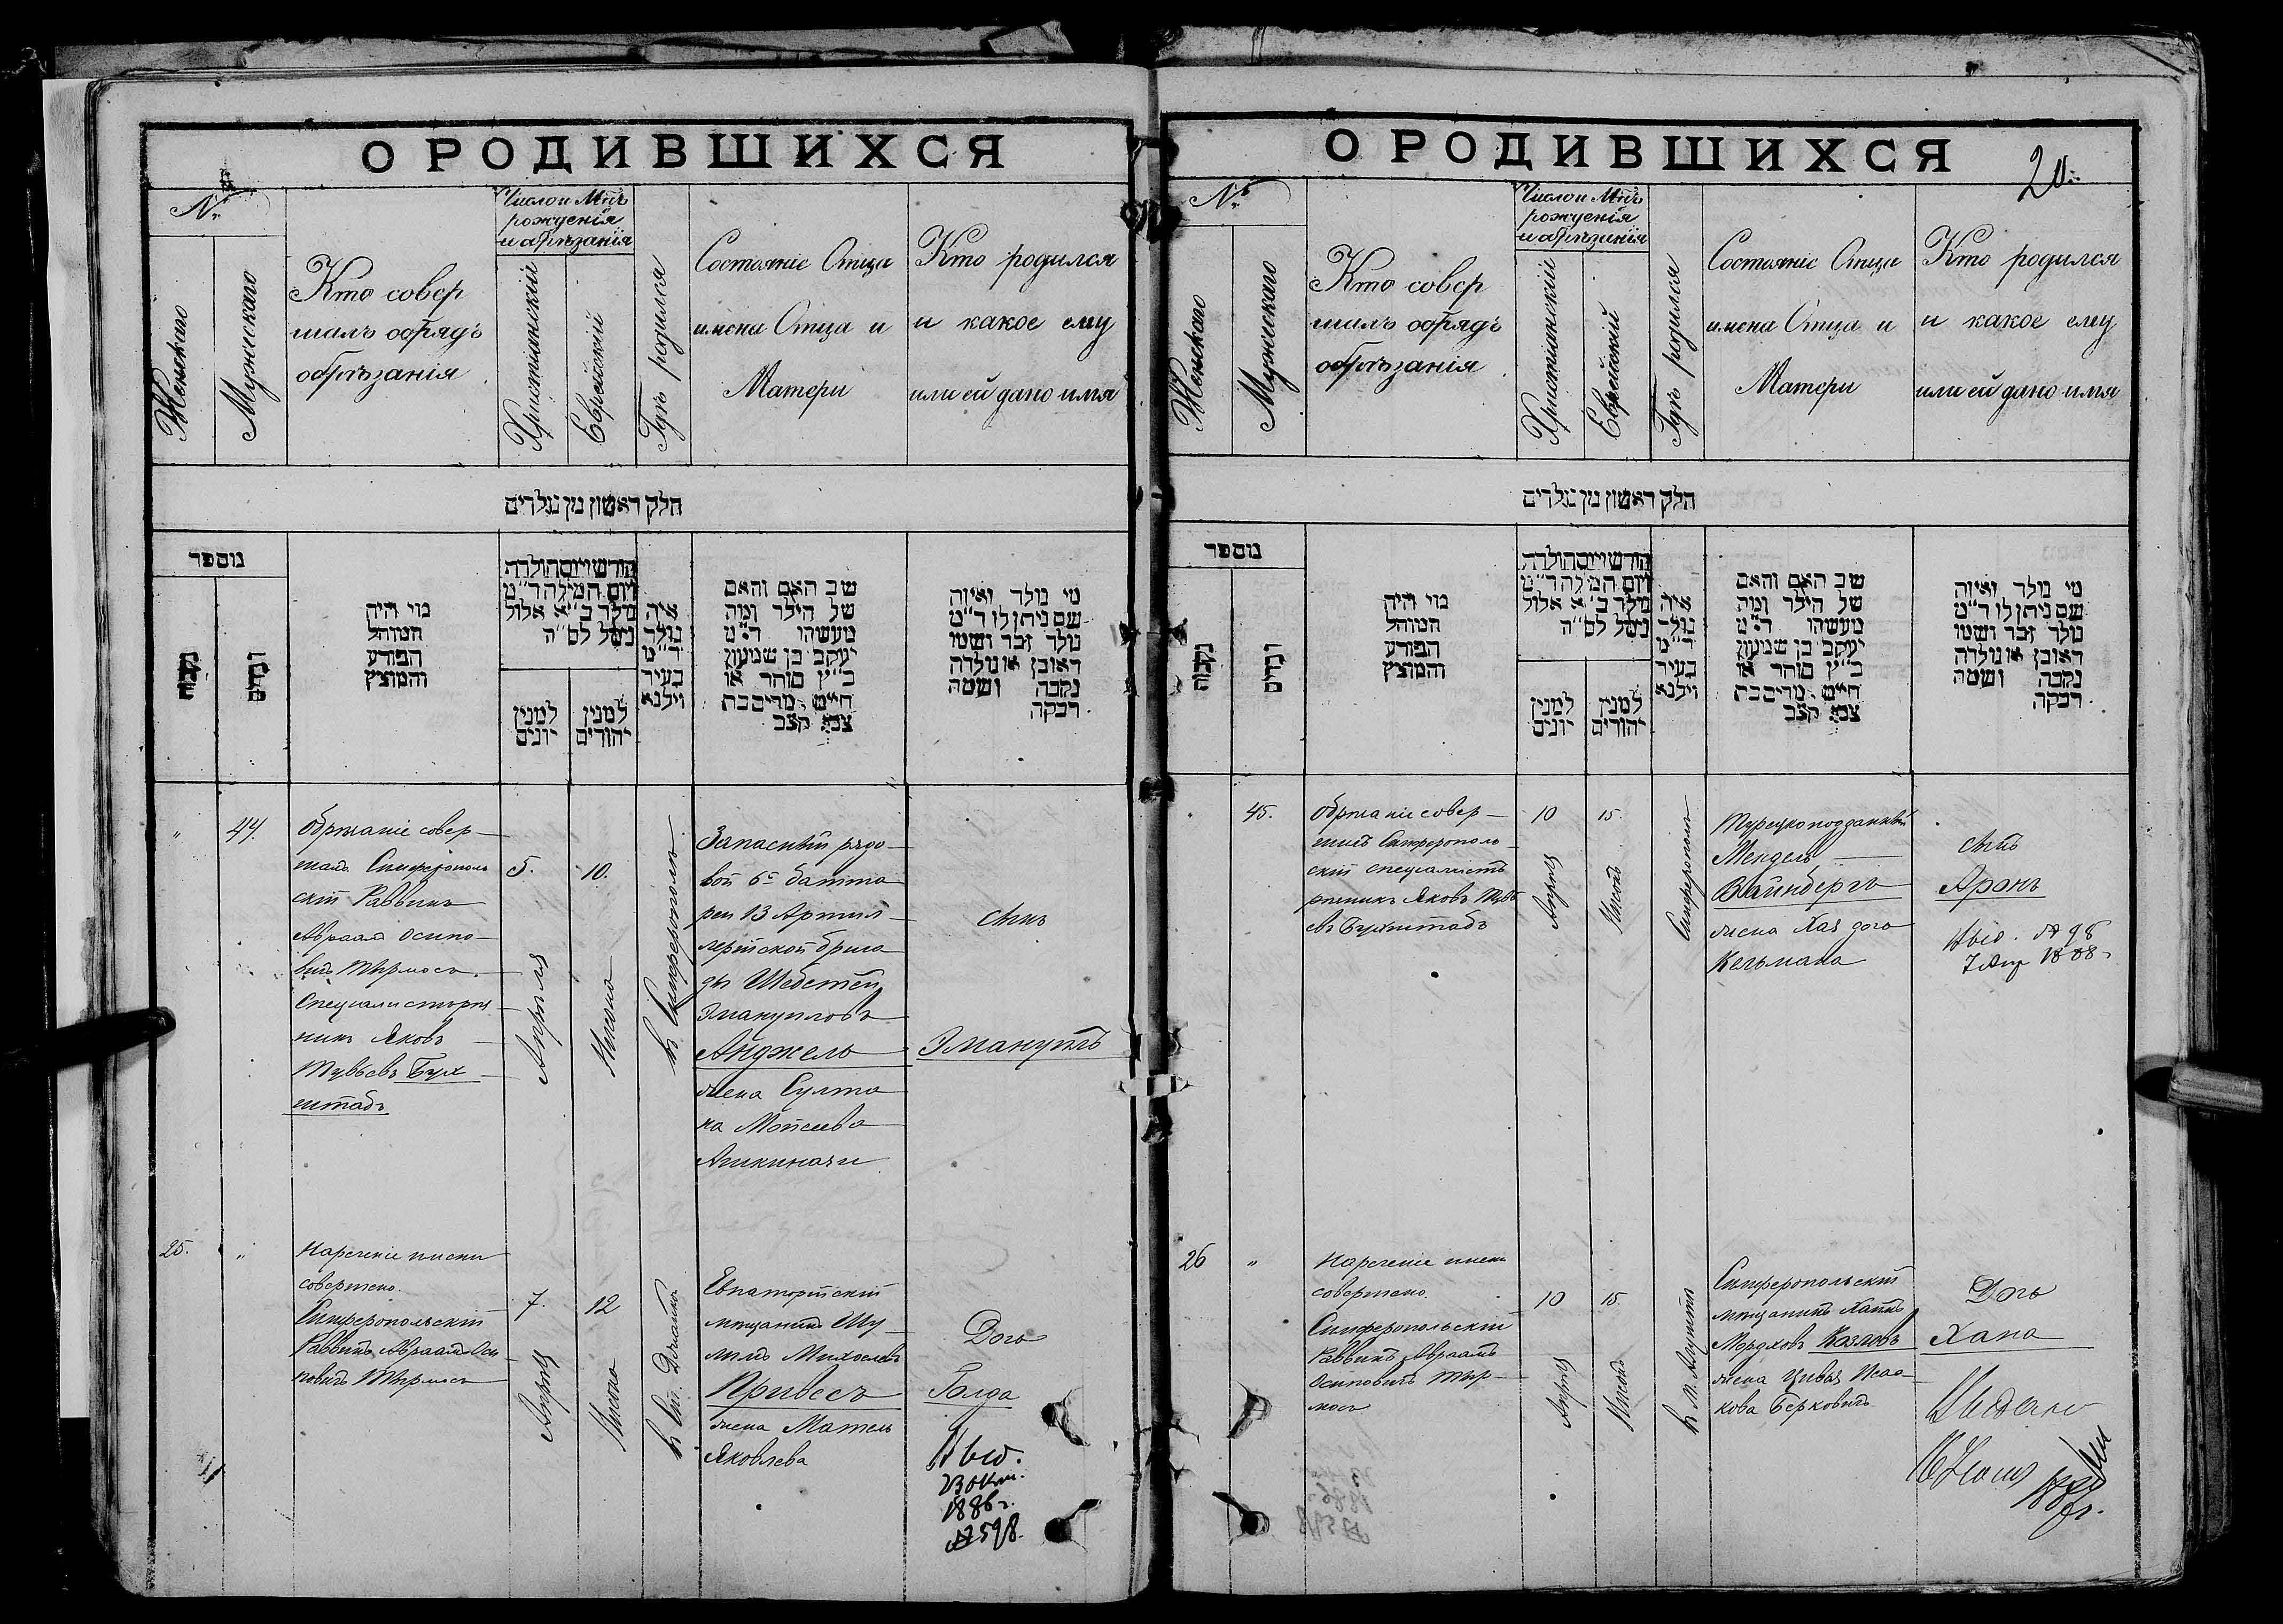 О РОДИВШИХСЯ
№
Женскаго
Мужескаго
Кто совер
шалъ обрядъ
обрѣзанія
Число и Мѣс.
рожденія
и обрѣзанія
Христіанскій
Еврейскій
Гдѣ родился
Состояніе Отца
имена Отца и
Матери
Кто родился
и какое ему
или ей дано имя
חלק ראשון מן נולדים
מוספר
נקבות
זכרים
מי היה
המוהל
הפורע
והמוצץ
חודש ויום הולדת
ויום המילה ד״מ
נולד ב״א אלול
נימל לס״ה
למנין
יונים
למנין
יהודים
איה
נולד
ד״מ
בעיר
וילנא
שב האם והאם
של הילד ומה
מעשהו ד״מ
יעקב בן שמעון
כ״ץ סוחר או
חיים מרים בת
צבי קצב
מי נולד ואיזה
שם ניתן לו ד״מ
נולד זכר ושמו
ראובן או נולדה
נקבה ושמה
רבקה
"
44.
Обрѣзаніе совер-
шалъ Симферополь
скій Раввинъ
Авраам Осипо-
вичъ Тырмосъ.
Специалистъ рѣз
никъ Яковъ
Тувьевъ Бух
штабъ
5.
Апрѣля
10.
Нисона
въ Симферополѣ
Запасный рядо-
вой 6й батта
реи 13 Артил-
лерійской брига
ды Шебетей
Эмануиловъ
Анджель
жена Султа
на Мойсеева
Ашкинази
Сынъ
Эмануилъ
25.
"
Нареченіе имени
совершено.
Симферопольскій
Раввинъ Авраамъ Оси
повичъ Тырмосъ
7.
Апрѣля
12
Нисона
Евпаторійскій
мѣщанинъ Шу-
лимъ
Привесъ
жена Матель
Яковлева
Дочь
Голда
Выд.
23 Окт.
1886 г.
№ 598.
О РОДИВШИХСЯ
20.
№
Женскаго
Мужескаго
Кто совер
шалъ обрядъ
обрѣзанія
Число и Мѣс.
рожденія
и обрѣзанія
Христіанскій
Еврейскій
Гдѣ родился
Состояніе Отца
имена Отца и
Матери
Кто родился
и какое ему
или ей дано имя
חלק ראשון מן נולדים
מוספר
נקבות
זכרים
מי היה
המוהל
הפורע
והמוצץ
חודש ויום הולדת
ויום המילה ד״מ
נולד ב״א אלול
נימל לס״ה
למנין
יונים
למנין
יהודים
איה
נולד
ד״מ
בעיר
וילנא
שב האם והאם
של הילד ומה
מעשהו ד״מ
יעקב בן שמעון
כ״ץ סוחר או
חיים מרים בת
צבי קצב
מי נולד ואיזה
שם ניתן לו ד״מ
נולד זכר ושמו
ראובן או נולדה
נקבה ושמה
רבקה
45.
Обрѣзаніе совер-
шилъ Симферополь-
скій специалистъ
рѣзникъ Яковъ Тувь
евъ Бухштабъ
10
Апрѣля
15.
Нисона
Симферополь
Турецкоподданный
Мендель
Вайнбергъ
жена Хая дочь
Кельмана
Сынъ
Аронъ
Выд. № 98
7 Апр 1888 г.
26
"
Нареченіе имени
совершено.
Симферопольскій
Раввинъ Авраамъ
Осиповичъ Тыр-
мосъ
10
Апрѣля
15.
Нисона
въ м. Алуштѣ
Симферопольскій
мѣщанинъ Хаимъ
Мордховъ Козловъ
жена Цивья Исаа-
кова Берковичъ
Дочь
Хана
Выдано